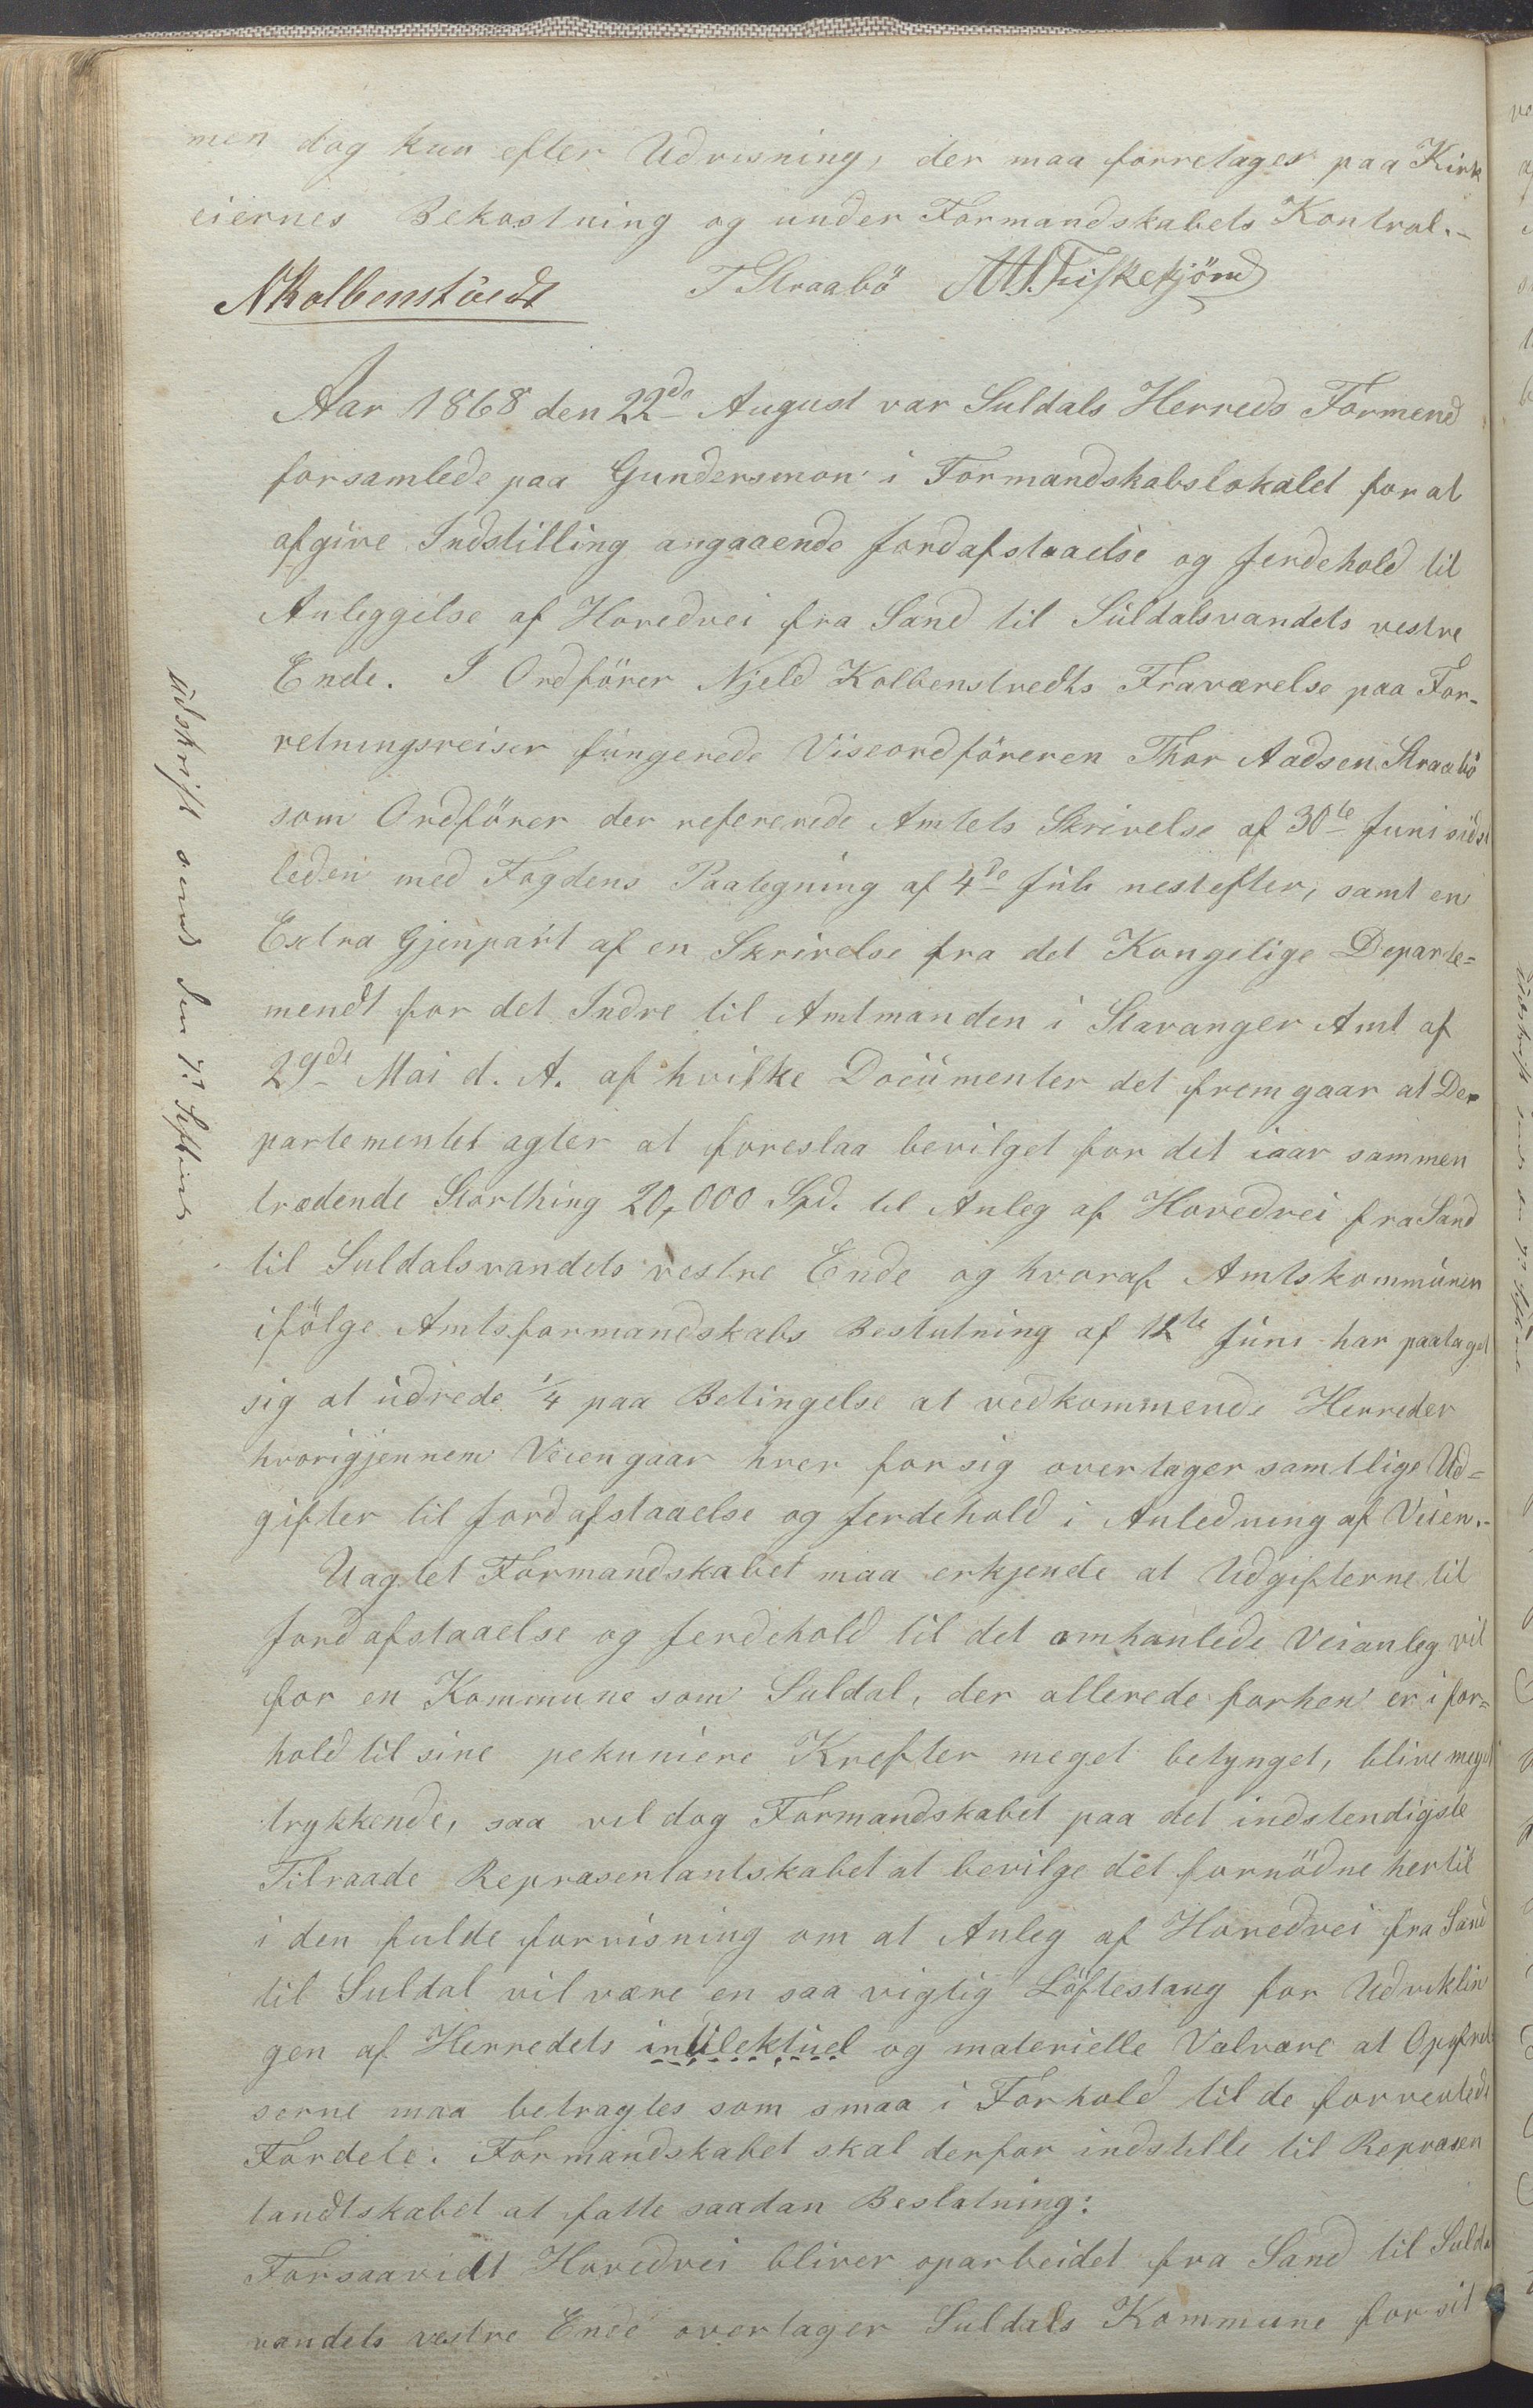 men dog kun efter Udvisning, der maa forretages paa Kirk
eiernes Bekostning og under Formandskabets Kontrol.-
NKolbenstvedt T Straabö
Aar 1868 den 22de August var Suldals Herreds Formend
forsamlede paa Gundersmon i Formandskabslokalet for at
afgive Indstilling angaaende Jordafstaaelse og Jerdehold til
Anleggelse af Hovedvei fra Sand til Suldalsvandets vestre
Ende. I Ordförer Njeld Kolbenstvedts Fraværelse paa For-
retningsreiser fungerede Viseordföreren Thor Aadsen Straabö
som Ordförer der refererede Amtets Skrivelse af 30te Juni sidst
leden med Fogdens Paategning af 4de Juli nestefter, samt en
Extra Gjenpart af en Skrivelse fra det Kongelige Departe=
mendt for det Indre til Amtmanden i Stavanger Amt af
29de Mai d. A. af hvilke Documenter det fremgaar at De-
partementet agter at foreslaa bevilget for det iaar sammen
trædende Storthing 20,000 Spd. til Anleg af Hovedvei fra Sand
til Suldalsvandets vestre Ende og hvoraf Amtskommunen
ifölge Amtsformandskabs Beslutning af 12te Juni har paataget
sig at udrede 1/4 paa Betingelse at vedkommende Herreder
hvorigjennem Veien gaar hver for sig overtager samtlige Ud=
gifter til Jordafstaaelse og Jerdehold i Anledning af Veien.-
Uagtet Formandskabet maa erkjende at Udgifterne til
Jordafstaaelse og Jerdehold til det omhanlede Veianleg vil
for en Kommune som Suldal, der allerede forhen er i for=
hold til sine pekuniere Krefter meget betynget, blive meget
trykkende, saa vil dog Formandskabet paa det indstendigste
Tilraade Repræsentantskabet at bevilge det fornödne hertil
i den fulde forvisning om at Anleg af Hovedvei fra Sand
til Suldal vil være en saa vigtig Löftestang for Udviklin
gen af Herredets intilektuel og materielle Velvære at Opofrel
serne maa betragtes som smaa i Forhold til de forventede
Fordele. Formandskabet skal derfor indstille til Repræsen
tandtskabet at fatte saadan Beslutning:
Forsaavidt Hovedvei bliver oparbeidet fra Sand til Sulda
vandets vestre Ende overtager Suldals Kommune for sit
Udskrift sendt den 7de Septemb